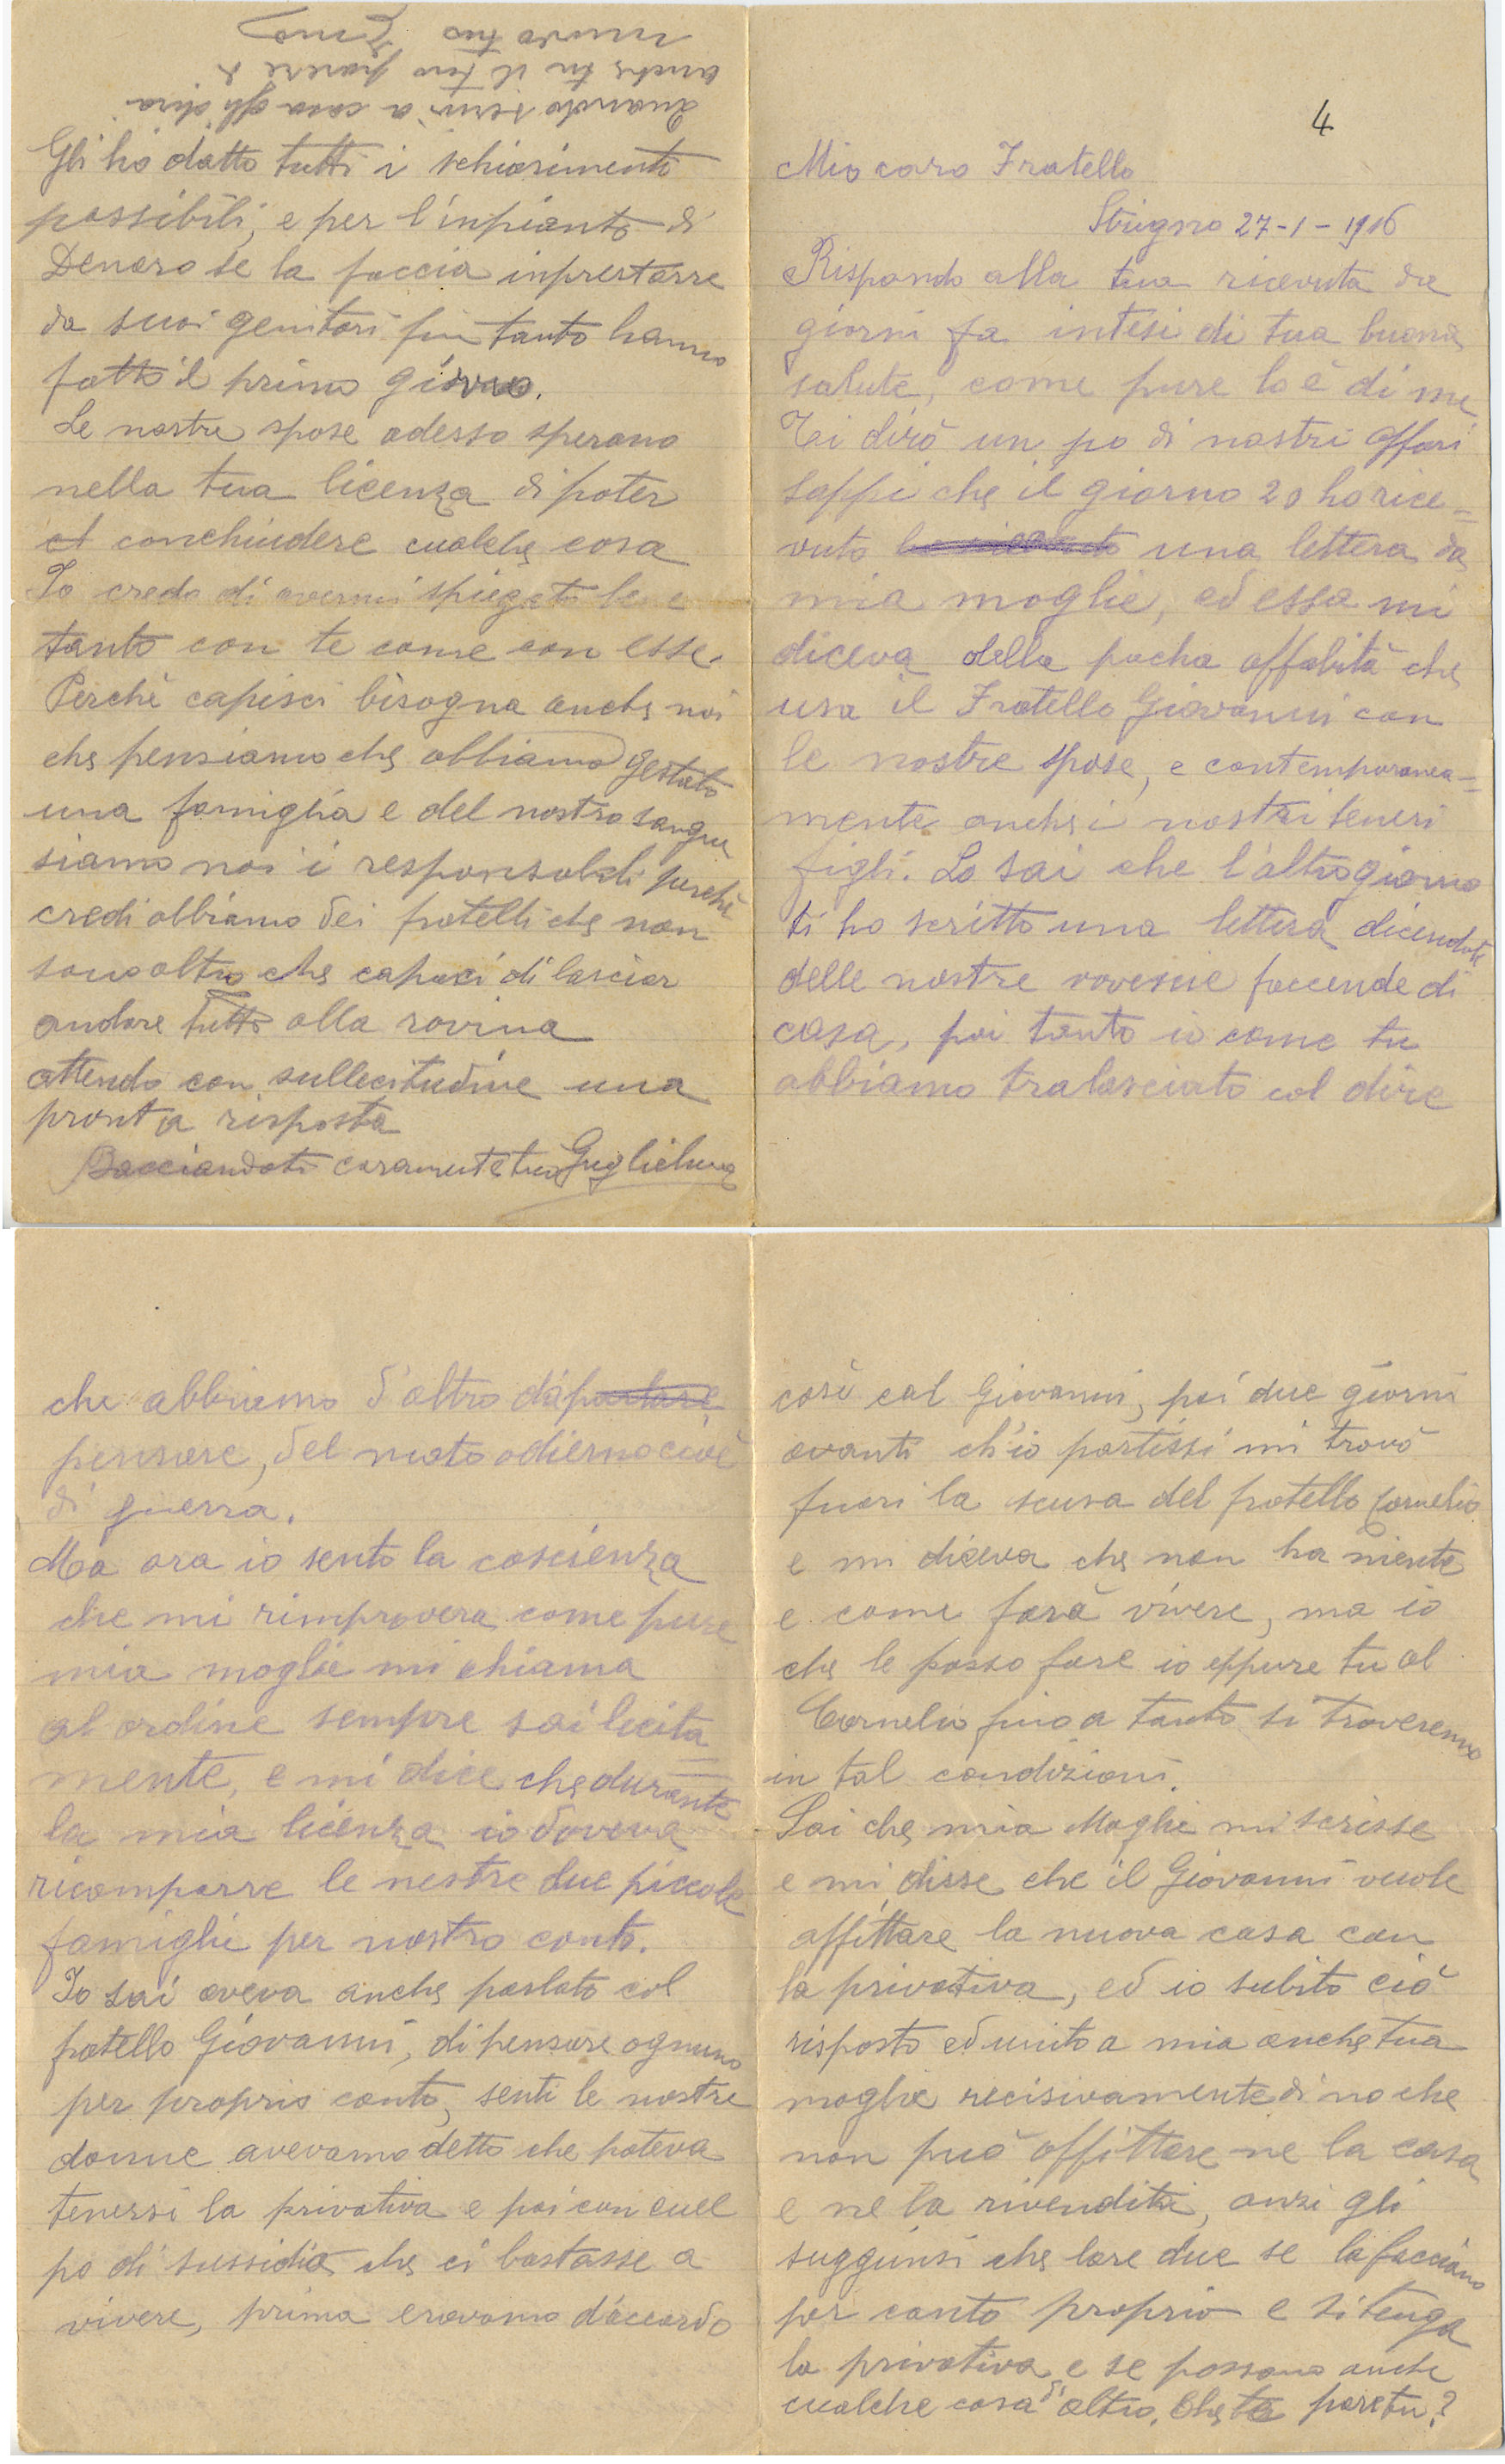 4
Mio caro Fratello
Strigno 27-1-1916
Rispondo alla tua ricevuta da
giorni fa intesi di tua buona
salute, come pure lo è di me
Ti dirò un po di nostri affari
sappi che il giorno 20 ho rice=
vuto una lettera da
mia moglie, ed essa mi
diceva della pocha affabità che
usa il Fratello Giovanni con
le nostre spose, e contemporanea=
mente anche i nostri teneri
figli. Lo sai che l'altro giorno
ti ho scritto una lettera dicendoti
delle nostre rovescie faccende di
casa, poi tanto io come tu
abbiamo tralasciato col dire
che abbiamo d'altro da parlare
pensare, del moto odierno cioè
di guerra.
Ma ora io sento la coscienza
che mi rimprovera come pure
mia moglie mi chiama
al ordine sempre sai licita
mente, e mi dice che durante
la mia licenza io doveva
ricomporre le nostre due piccole
famiglie per nostro conto.
Io sai aveva anche parlato col
fratello Giovanni, di pensare ognuno
per proprio conto, senti le nostre
donne avevamo detto che poteva
tenersi la privativa e poi con cuel
po di sussidio che ci bastasse a
vivere, prima eravamo d'accordo
così cal Giovanni, poi due giorni
avanti ch'io partissi mi trovò
fuori la scusa del fratello Cornelio
e mi diceva che non ha niente
e come farà vivere, ma io
che le posso fare io eppure tu al
Cornelio fino a tanto si troveremo
in tal condizioni.
Sai che mia Moglie mi scrisse
e mi disse che il Giovanni vuole
affittare la nuova casa con
la privativa, ed io subito ciò
risposto ed unito a mia anche tua
moglie recisivamente di no che
non può affittare ne la casa
e ne la rivendita, anzi gli
suggiunsi che lore due se la facciano
per conto proprio e si tenga
la privativa e se possono anche
cualche cosa di altro. Che te pare tu?
Gli ho datto tutti i schiarimenti
possibili, e per l'inpianto di
Denaro se la faccia inprestarre
da suoi genitori fin tanto hanno
fatto il primo giorno.
Le nostre spose adesso sperano
nella tua licenza di poter
et conchiudere cualche cosa
Io credo di avermi spiegato
tanto con te come con esse.
Perchè capisci bisogna anche noi
che pensiamo che abbiamo gestato
una famiglia e del nostro sangue
siamo noi i responsabili perchè
credi abbiamo dei fratelli che non
sono altro che capaci di lasciar
andare tutto alla rovina
attendo con sullecitudine una
pronta risposta
Bacciandoti caramente tuo Guglielmo
Quando scrivi a casa gli dirai
anche tu il tuo parere di
nuovo tuo